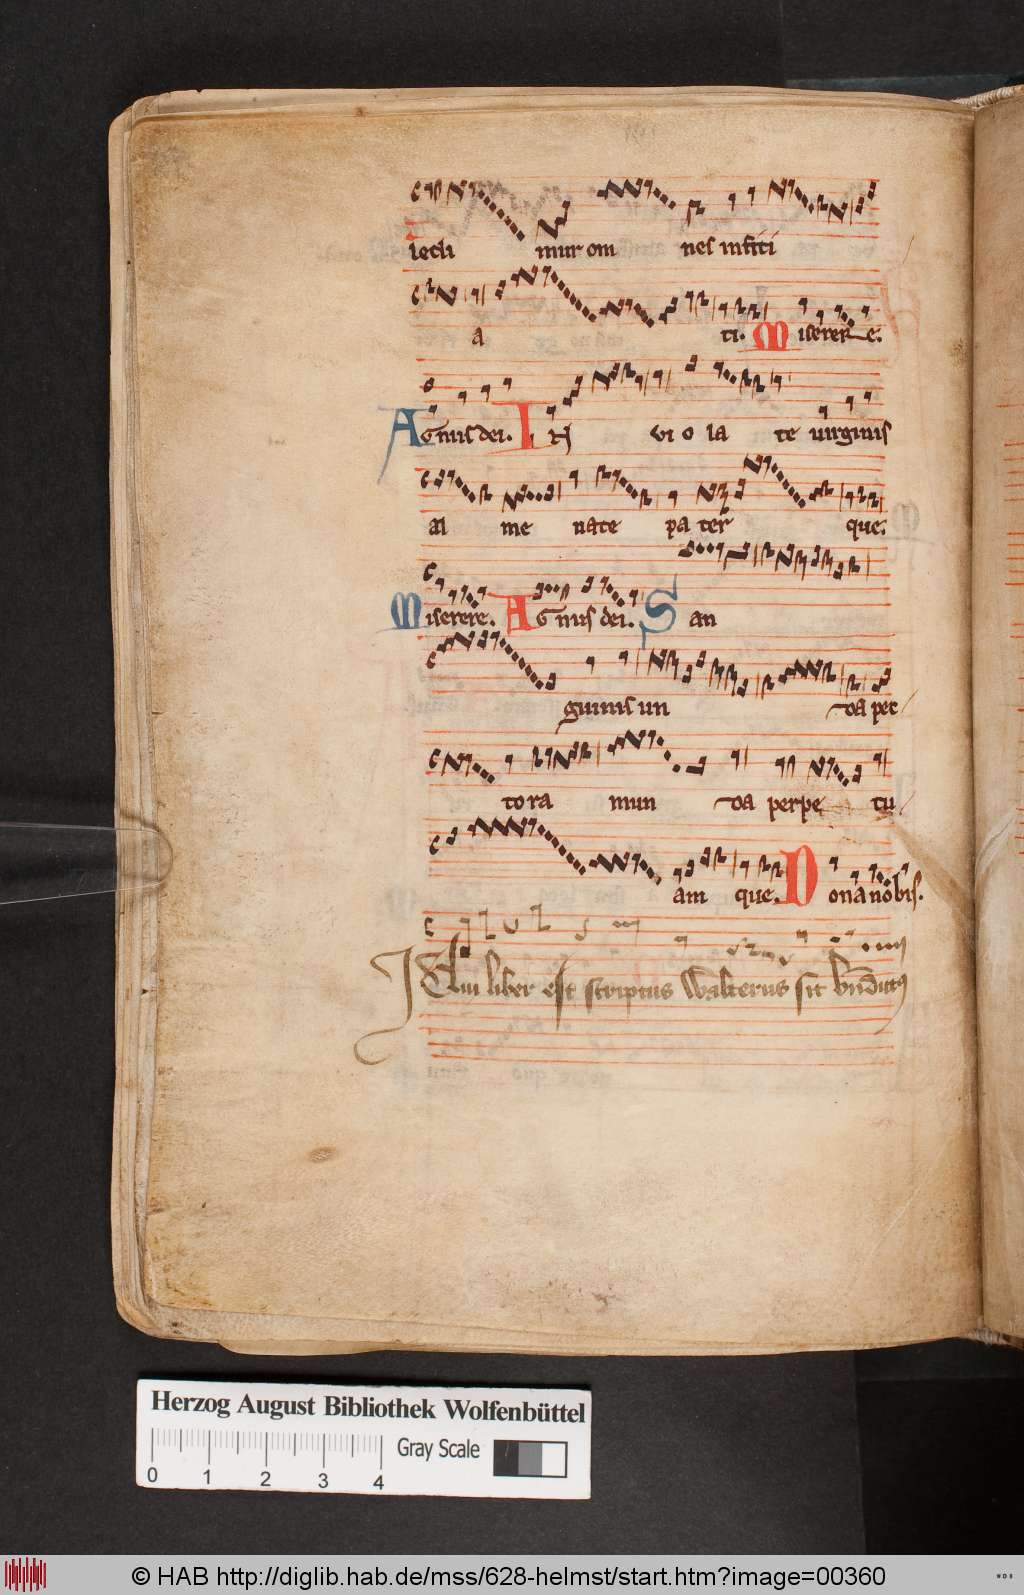 iecti mur om nes in siti
a ti. Miserere.
Agnus dei. In vi o la te uirginis
al me nate pa ter que.
Miserere. Agnus dei. San
guinis un da per
to ra mun da perpe tu
am que. Dona nobis.
liber est scriptus Walterus sit
Herzog August Bibliothek Wolfenbüttel
0 1 2 3 4 Gray Scale
© HAB http://diglib.hab.de/mss/628-helmst/start.htm?image=00360